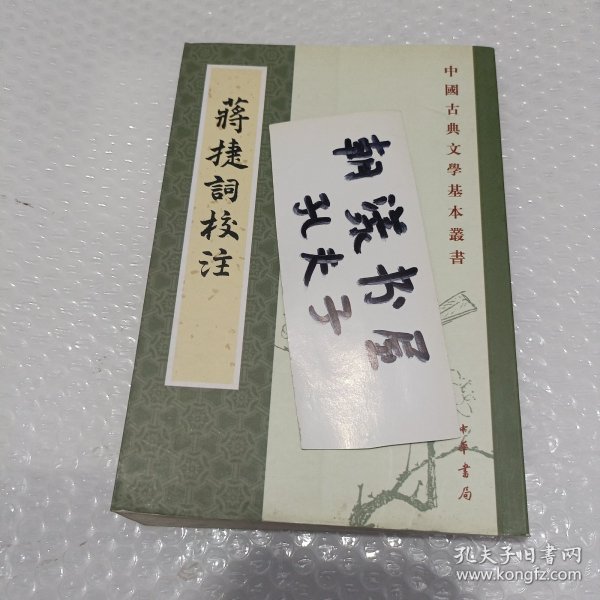 蔣捷詞校注
中國古典文學基本叢書
朝漢书屋
孔夫子
中華書局
孔夫子旧书网
www.kongfz.com